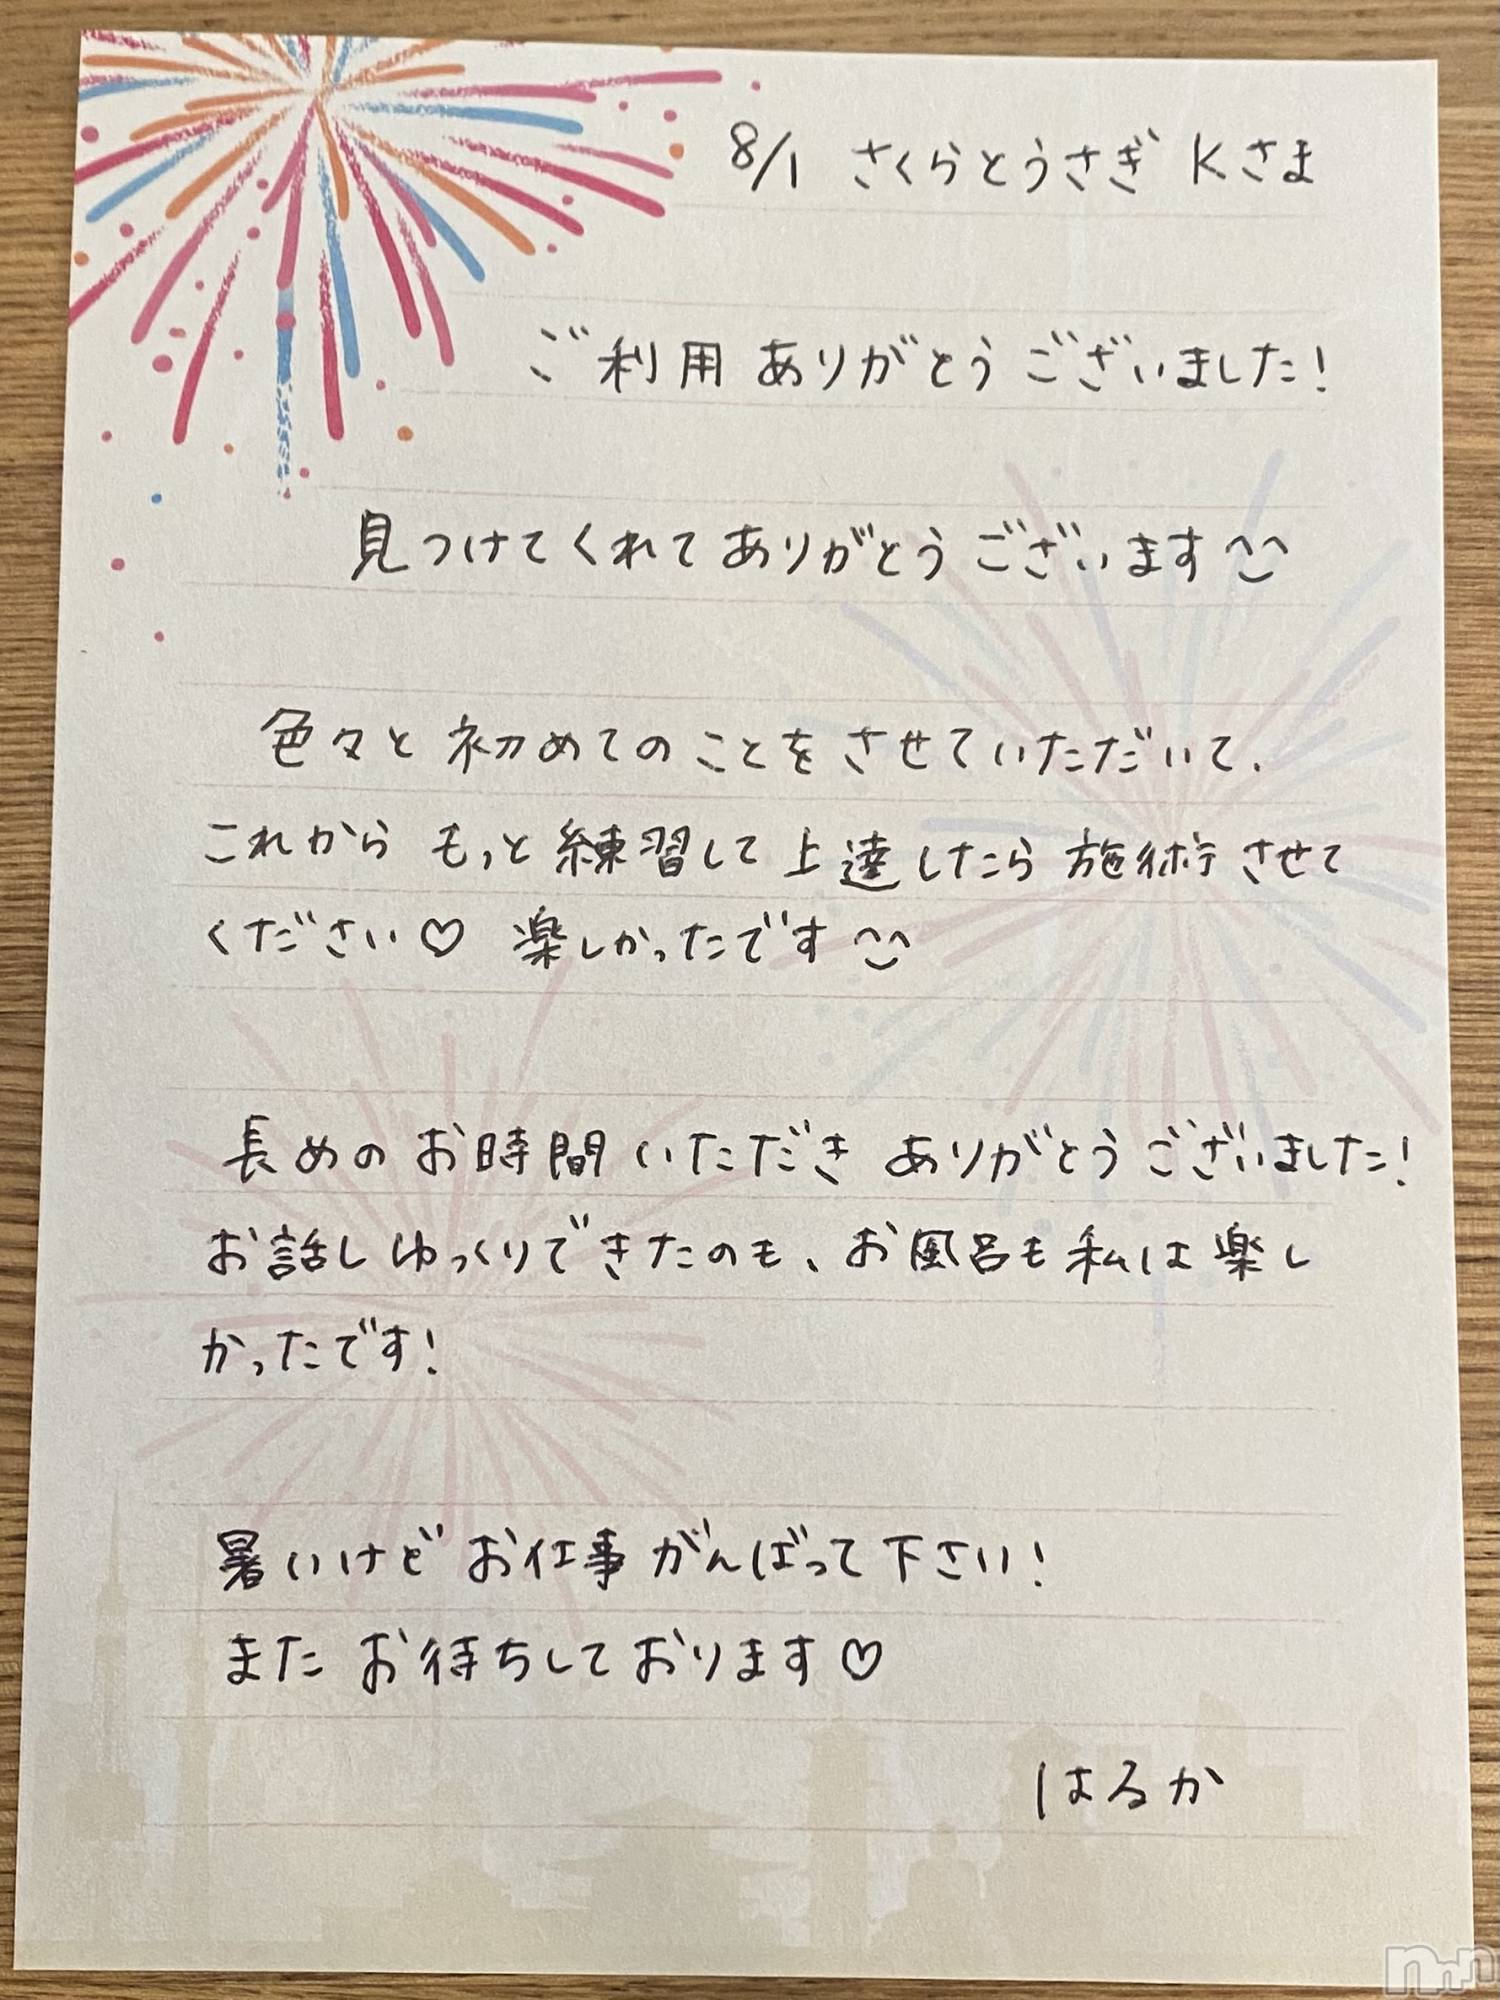 8/1 さくらとうさぎ Kさま
ご利用 ありがとうございました!
見つけてくれてありがとうございます^^
色々と初めてのことをさせていただいて、
これから もっと練習して上達したら施術させて
ください♡ 楽しかったです^^
長めのお時間いただき ありがとうございました!
お話しゆっくりできたのも、お風呂も私は楽し
かったです!
暑いけど お仕事がんばって下さい!
また お待ちしております♡
はるか